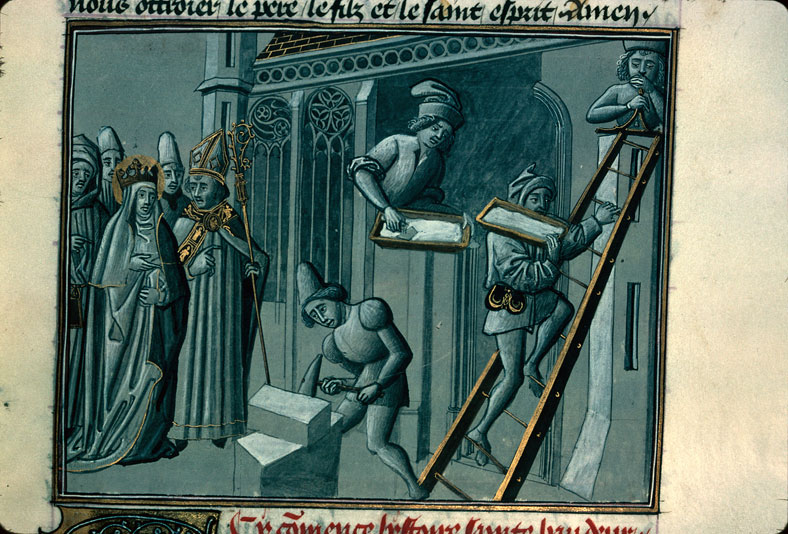 nous ottroier le pere le filz et le saint esprit Amen
Cy cõmence lystoire sainte baudeur